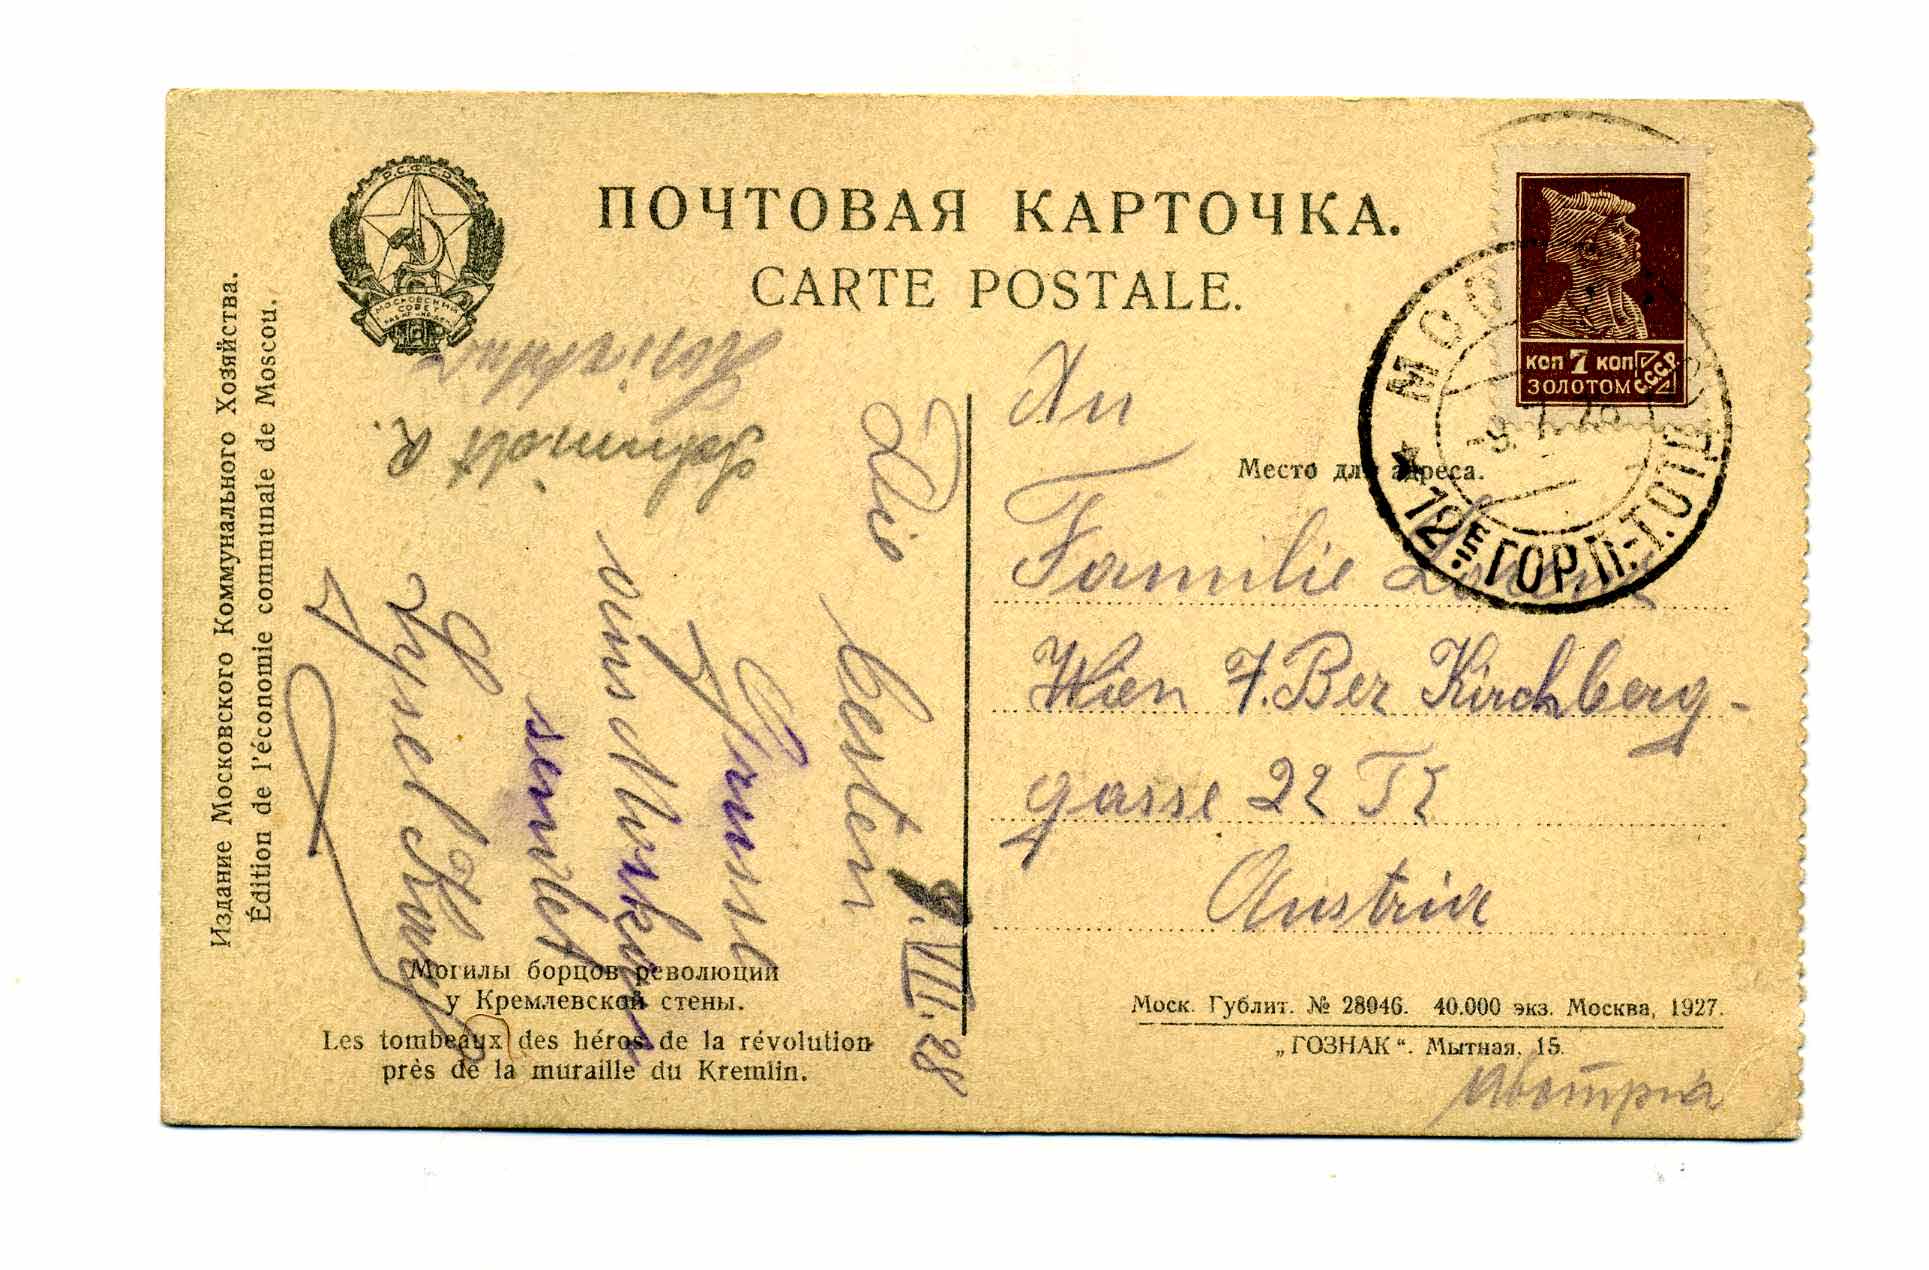 Издание Московского Коммунального Хозяйства.
Édition de l'économie communale de Moscou.
Р.С.Ф.С.Р.
МОСКОВСКИЙ
СОВЕТ
ПОЧТОВАЯ КАРТОЧКА.
CARTE POSTALE.
КОП 7 КОП
ЗОЛОТОМ С.С.С.Р.
МОС
12Е ГОР.П.-Т.ОТД.
Место для адреса.
An
Familie
Wien 7. Bez Kirchberg-
gasse 22
Austria
Die
besten
Grüsse
aus Moskau
sendet
Schmidt R.
9.VIII.28
Могилы борцов революции
у Кремлевской стены.
Les tombeaux des héros de la révolution
près de la muraille du Kremlin.
Моск. Гублит. № 28046. 40.000 экз. Москва, 1927.
„ГОЗНАК“. Мытная, 15.
Австрия